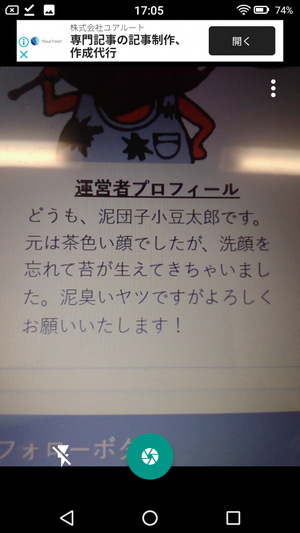 17:05
74%
株式会社ユアルート
専門記事の記事制作、
作成代行
開く
運営者プロフィール
どうも、泥団子小豆太郎です。
元は茶色い顔でしたが、洗顔を
忘れて苔が生えてきちゃいまし
た。泥臭いヤツですがよろしく
お願いいたします！
フォローボタ